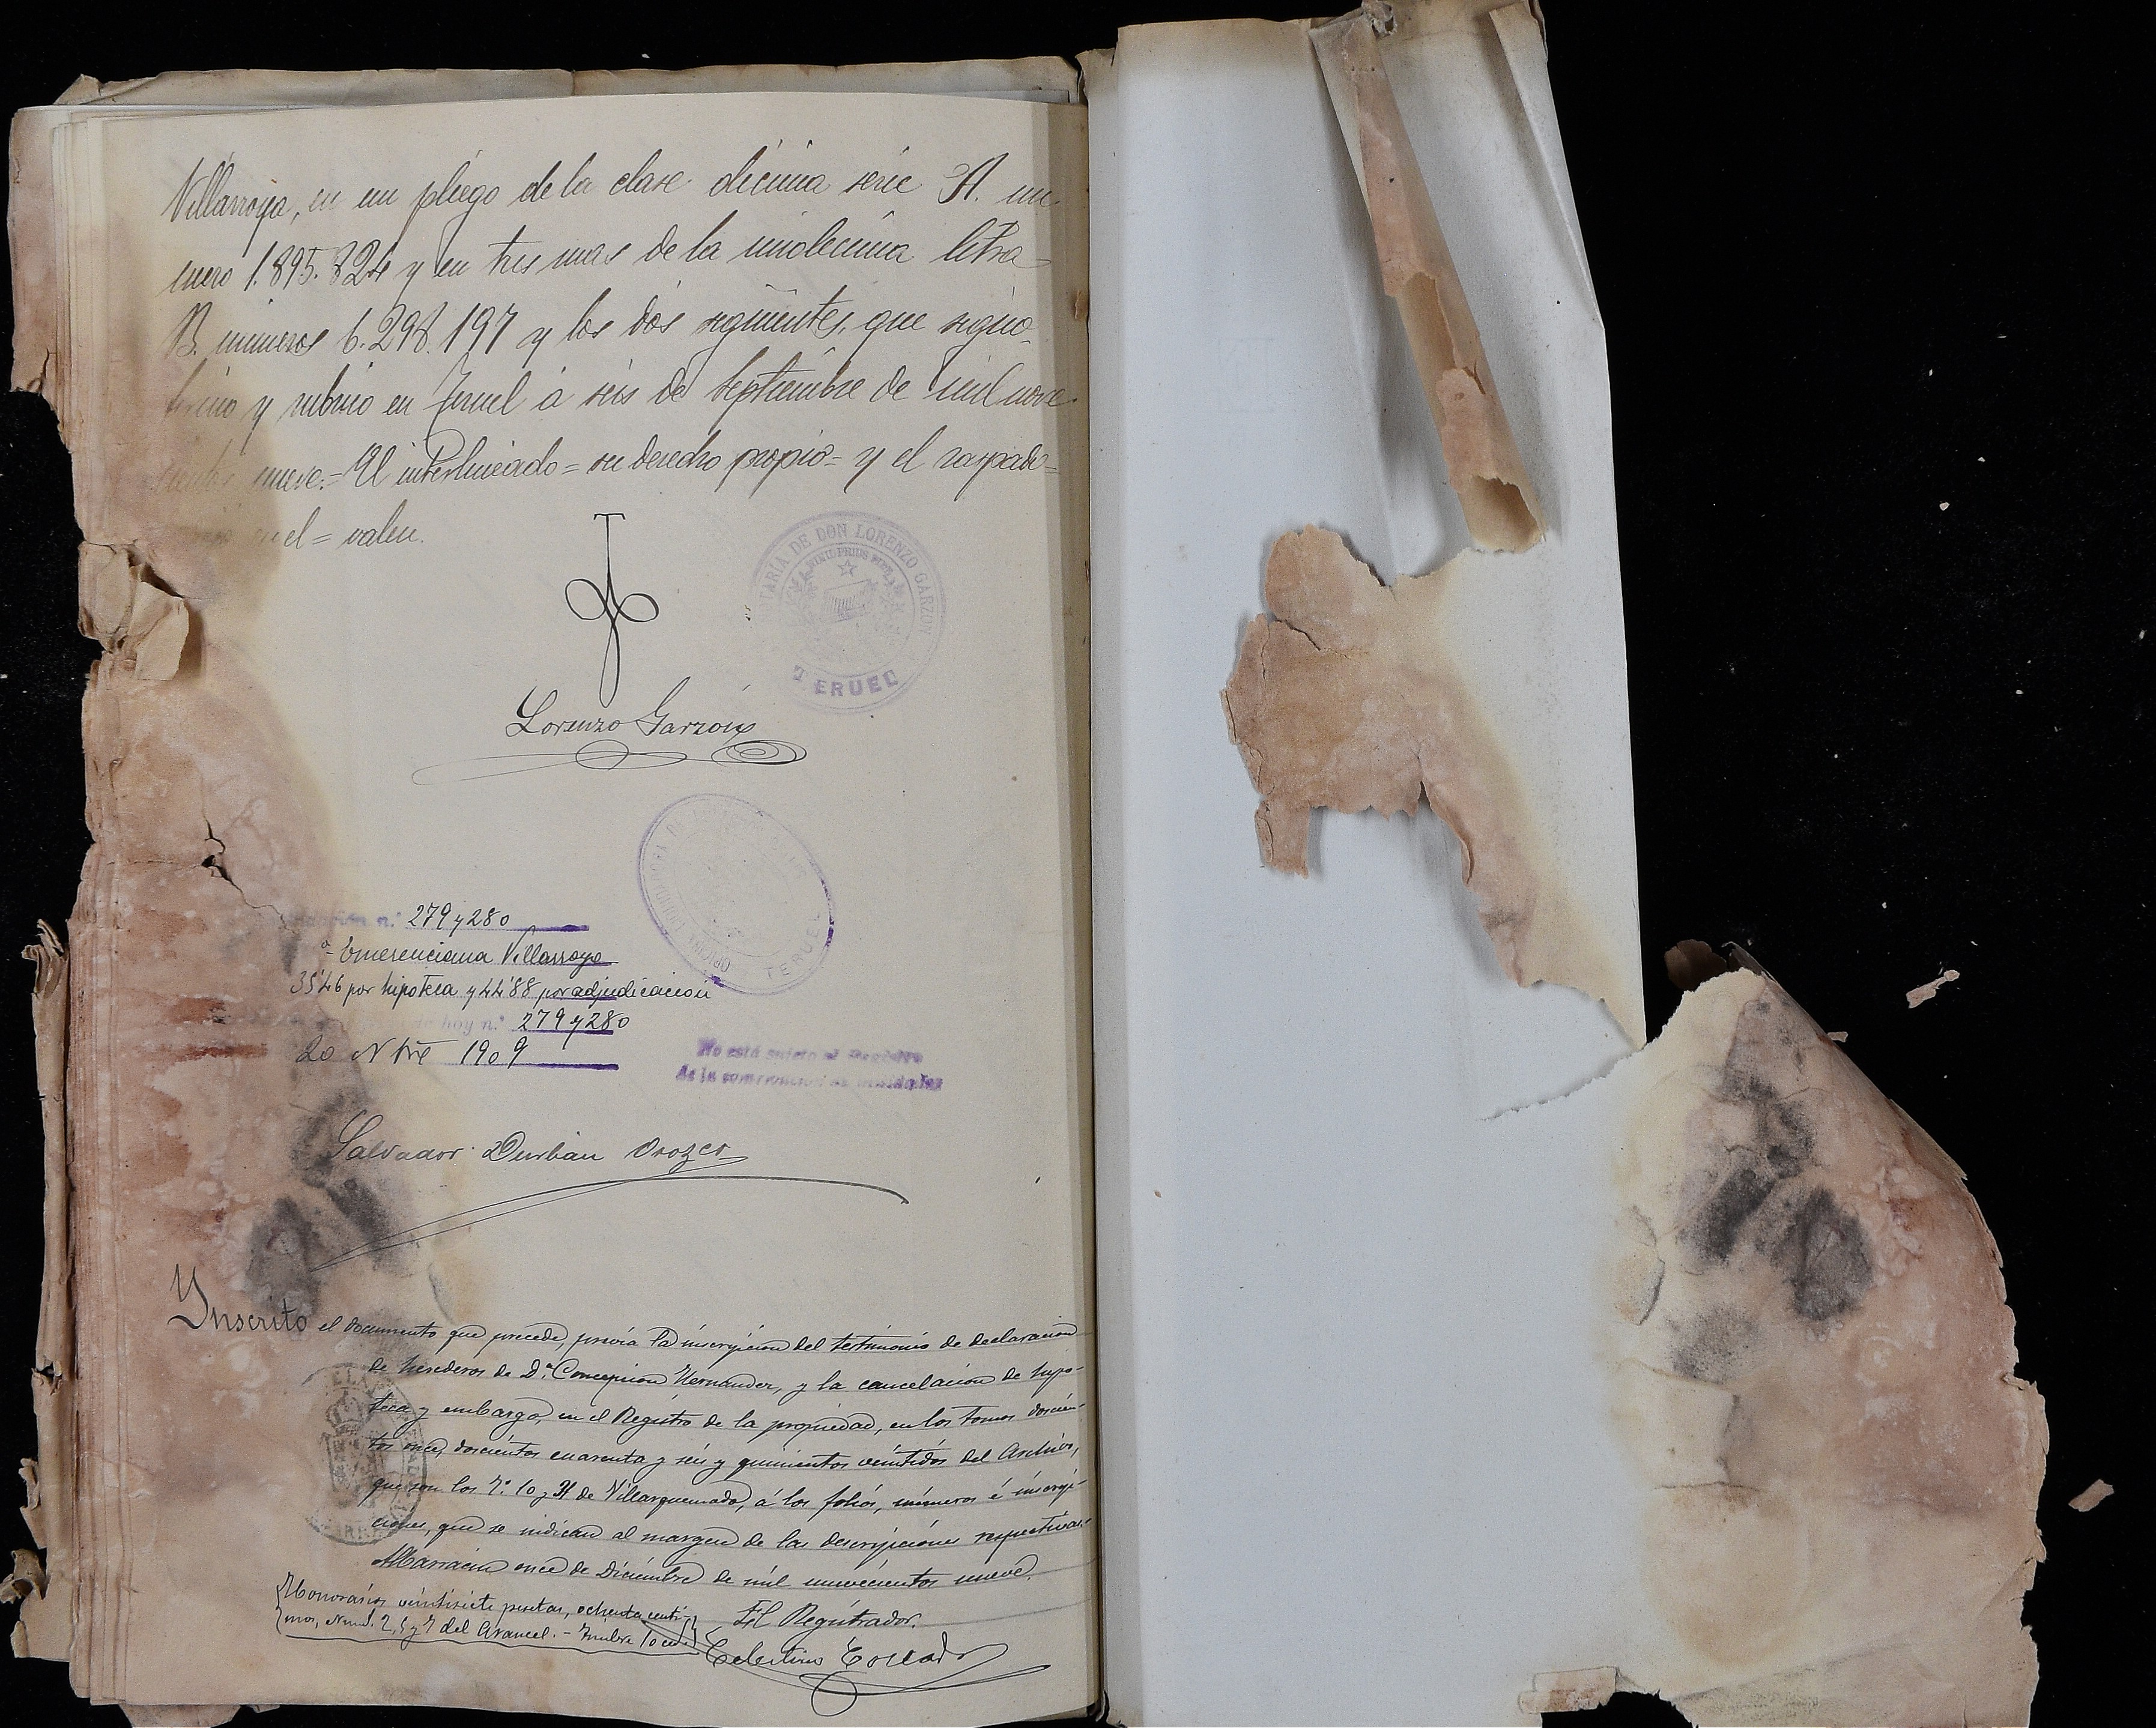 Villarroya, en un pliego de la clase décima serie A. nú
mero 1.895.824 y en tres mas de la undécima letra
B. números 6.298.197 y los dos siguientes, que signo
firmo y rubrico en Teruel á seis de Septiembre de mil nove
cientos nueve.=El interlineado=su derecho propio=y el raspado=
en el=valen.
NOTARÍA DE DON LORENZO GARZON
NIHIL PRIUS FIDE
TERUEL
Lorenzo Garzón
n.º 279 y 280
ª Emerenciana Villarroya
35'46 por hipoteca y 44'88 por adjudicación
de hoy n.º 279 y 280
20 Nbre 1909
TERUEL
No está sujeto al
de la
Salvador Durbán Orozco
Ynscrito el documento que precede, previa la inscripcion del testimonio de declaracion
de herederos de D.ª Concepcion Hernandez, y la cancelacion de hipo-
teca y embargo, en el Registro de la propiedad, en los tomos doscien-
tos once, doscientos cuarenta y seis y quinientos veintidós del Archivo,
que son los 7.º 10 y de Villarquemado, á los folios, números é inscrip-
ciones, que se indican al margen de las descripciones respectivas.
Albarracin once de Diciembre de mil novecientos nueve.
Honorarios veintisiete pesetas, ochenta centi-
mos, Núms. 2, 5 y 7 del Arancel.- Timbre 10 cts.
El Registrador.
Celestino Collado